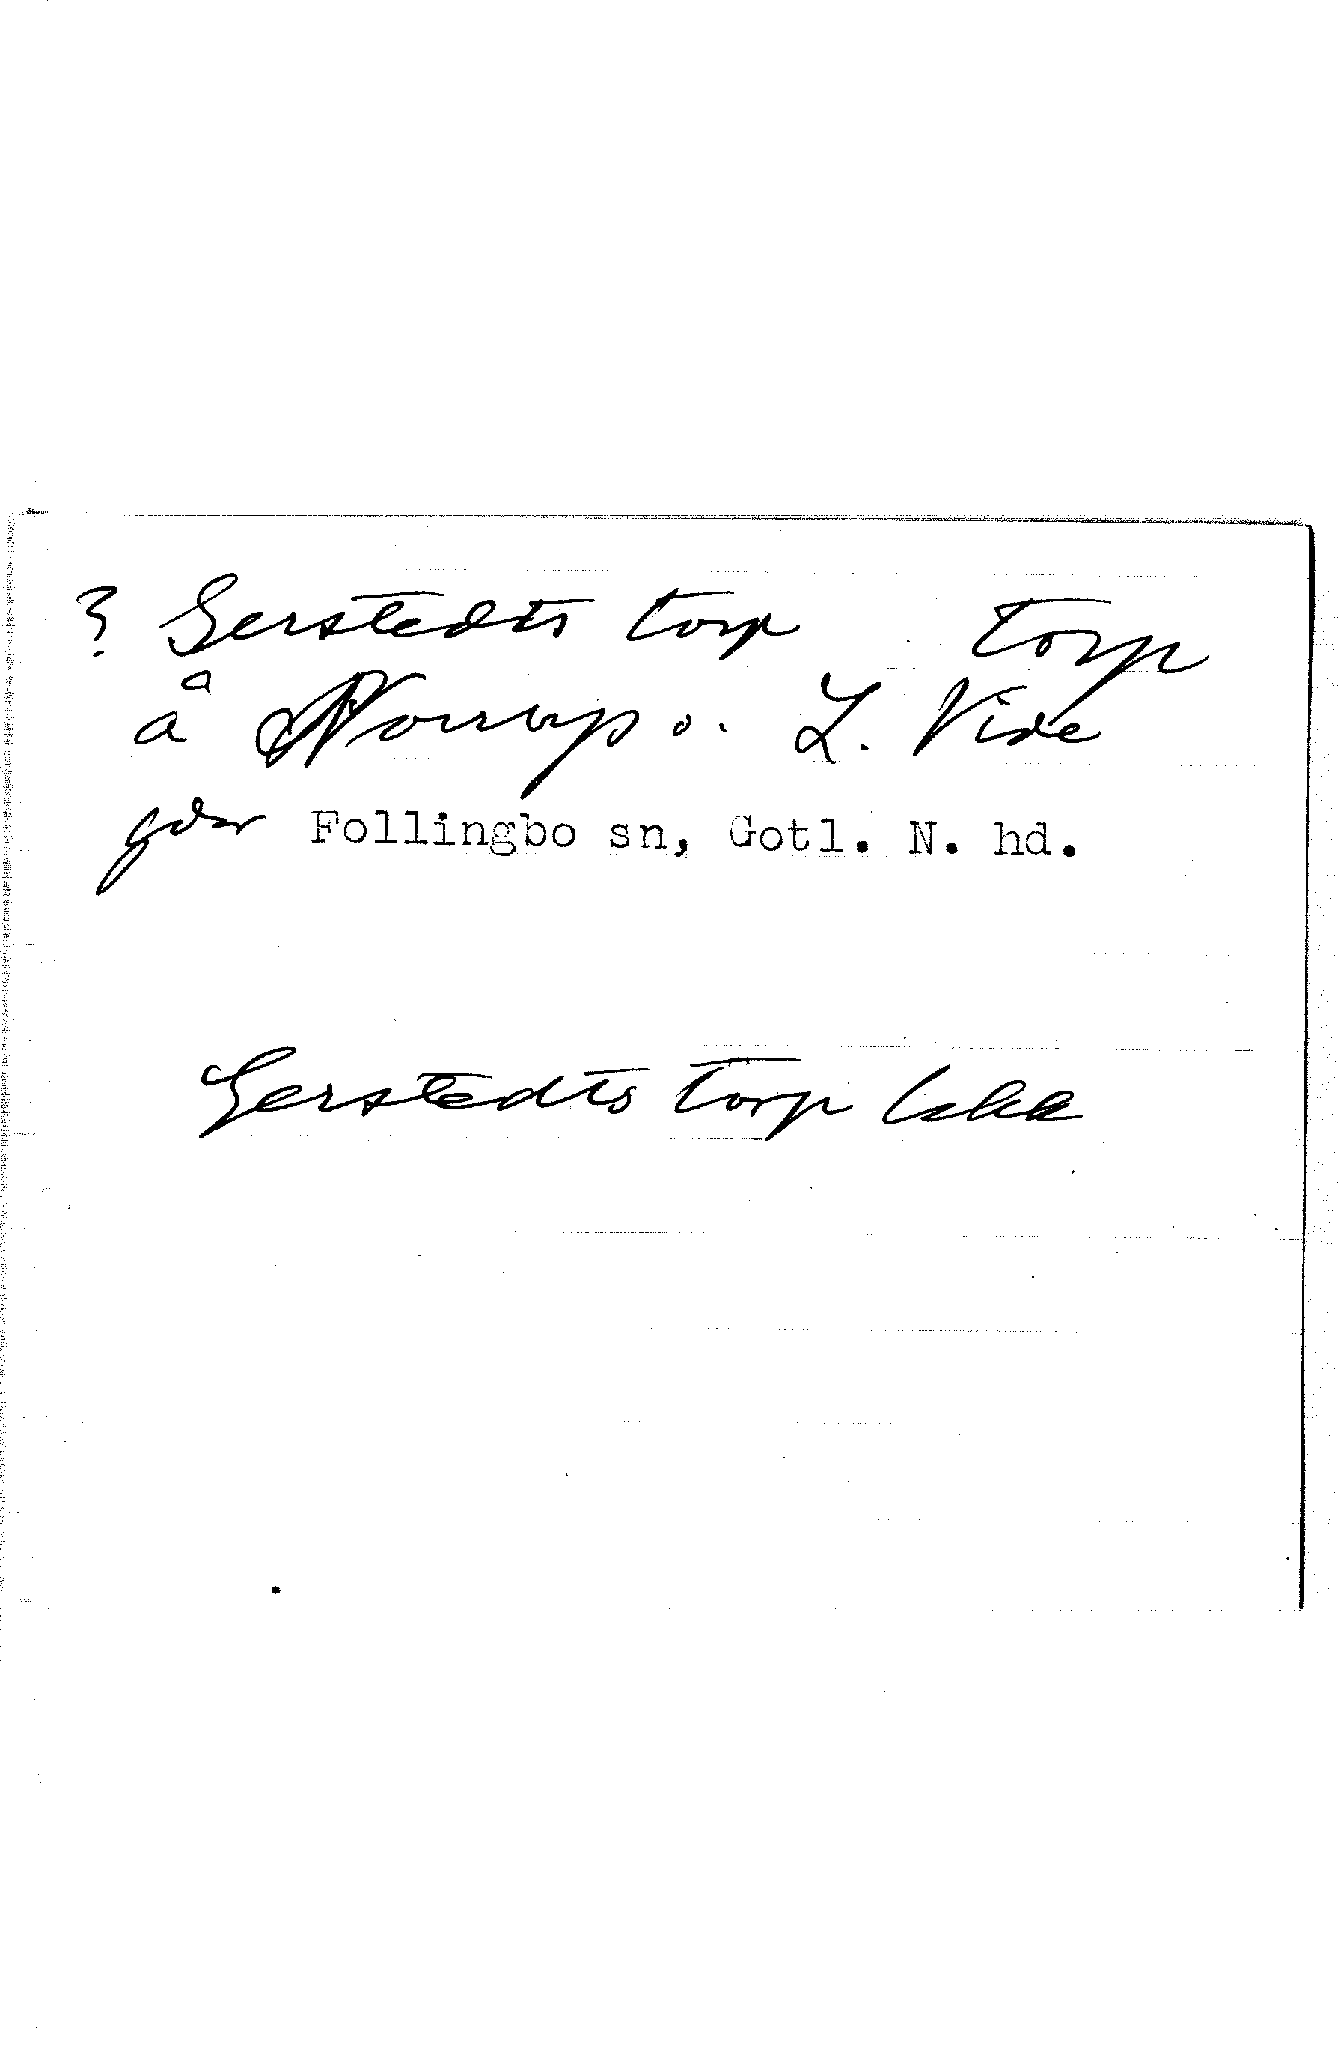 ? Gerstedts torp torp
å Norrups o. L. Vide
gdar Follingbo sn, Gotl. N. hd.
Gerstedts torp